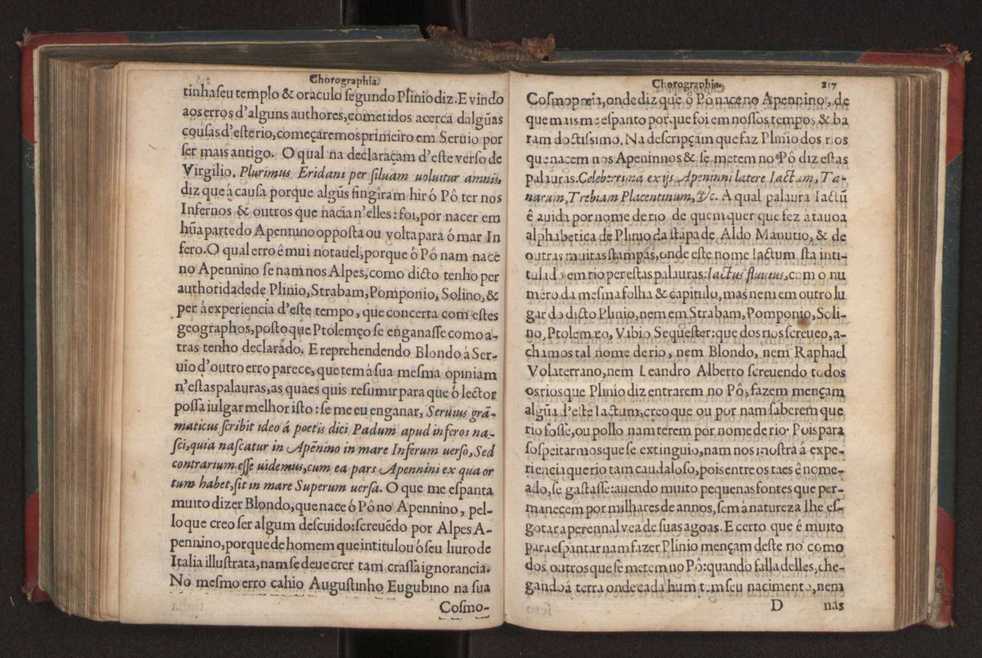 Chorographia.
tinha seu templo & oraculo segundo Plinio diz. E vindo
aos erros d'alguns authores, cometidos acerca dalgũas
cousas d'este rio, começaremos primeiro em Seruio por
ser mais antigo. O qual na declaraçam d'este verso de
Virgilio, Plurimus Eridani per siluam uoluitur amnis,
diz que à causa porque algũs fingiram hir ó Pô ter nos
Infernos & outros que nacia n'elles: foi, por nacer em
hũa parte do Apennino opposta ou volta para ó mar In
fero. O qual erro é mui notauel, porque ô Pô nam nace
no Apennino se nam nos Alpes, como dicto tenho per
authoridade de Plinio, Strabam, Pomponio, Solino, &
per à experiencia d'este tempo, que concerta com estes
geographos, posto que Ptolemęo se enganasse como a-
tras tenho declarado. E reprehendendo Blondo à Ser-
uio d'outro erro parece, que tem à sua mesma opiniam
n'estas palauras, as quaes quis resumir para que ó lector
possa iulgar melhor isto: se me eu enganar, Seruius grã-
maticus scribit ideo á poetis dici Padum apud inferos na-
sci, quia nascatur in Apẽnino in mare Inferum uerso, Sed
contrarium esse uidemus, cum ea pars Apennini ex qua or
tum habet, sit in mare Superum uersa. O que me espanta
muito dizer Blondo, que nace ô Pô no Apennino, pel-
lo que creo ser algum descuido: screuẽdo por Alpes A-
pennino, porque de homem que intitulou ó seu liuro de
Italia illustrata, nam se deue crer tam crassa ignorancia.
No mesmo erro cahio Augustinho Eugubino na sua
Cosmo-
Chorographia. 217
Cosmopœia, onde diz que ô Pô nace no Apennino, de
que mais me espanto porque foi em nossos tempos, & ba
ram doctissimo. Na descripçam que faz Plinio dos rios
que nacem nos Apeninnos & se metem no Pô diz estas
palauras. Celeberrima ex ijs Apennini latere Iactum, Ta-
narum, Trebiam Placentinum, &c. A qual palaura Iactũ
é auida por nome de rio de quem quer que fez à tauoa
alphabetica de Plinio da stãpa de Aldo Manutio, & de
outras muitas stampas, onde este nome Iactum sta inti-
tulado em rio per estas palauras: Iactus fluuius, com o nu
mero da mesma folha & capitulo, mas nem em outro lu
gar do dicto Plinio, nem em Strabam, Pomponio, Soli-
no, Ptolemęo, Vibio Sequester: que dos rios screueo, a-
chamos tal nome de rio, nem Blondo, nem Raphael
Volaterrano, nem Leandro Alberto screuendo todos
os rios que Plinio diz entrarem no Pô, fazem mençam
algũa d'este Iactum, creo que ou por nam saberem que
rio fosse, ou pollo nam terem por nome de rio. Pois para
sospeitarmos que se extinguio, nam nos mostra á expe-
riencia que rio tam caudaloso, pois entre os taes é nome-
ado, se gastasse: auendo muito pequenas fontes que per-
manecem por milhares de annos, sem á natureza lhe es-
gotar a perennal vea de suas agoas. E certo que é muito
para espantar nam fazer Plinio mençam deste rio como
dos outros que se metem no Pô: quando falla delles, che-
gando á terra onde cada hum tem seu nacimento, nem
D nas